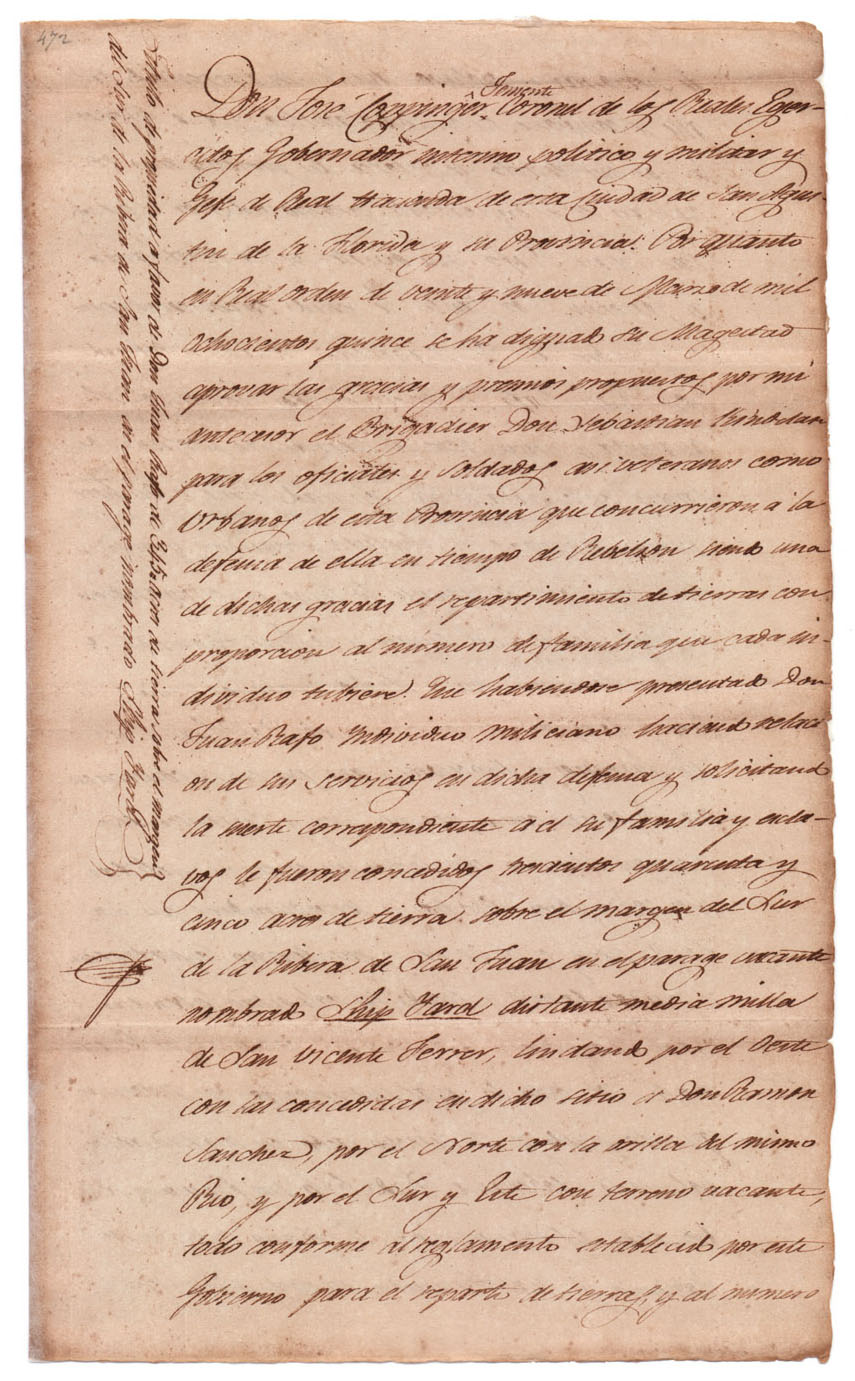 472
Titulo de propiedad a favor de Don Juan Rafo de 345 acres de tierra sobre el margen
del Sur de la Ribera de San Juan en el parage nombrado Ship Yard
Don José Coppinger Teniente Coronel de los Reales Eger-
citos Gobernador interino politico y militar y
Gefe de Real Hacienda de esta Ciudad de San Agus-
tin de la Florida y su Provincia. Por quanto
en Real orden de veinte y nueve de Marzo de mil
ochocientos quince se ha dignado su Magestad
aprovar las gracias y premios propuestos por mi
antecesor el Brigadier Don Sebastian Kindelan
para los oficiales y soldados asi veteranos como
Urbanos de esta Provincia que concurrieron a la
defensa de ella en tiempo de Rebelion siendo una
de dichas gracias el repartimiento de tierras con
proporcion al numero de familia que cada in-
dividuo tubiere. Que habiendose presentado Don
Juan Rafo Individuo miliciano haciendo relaci
on de sus servicios en dicha defensa y solicitando
la suerte correspondiente a el su familia y escla-
vos le fueron concedidos trescientos quarenta y
cinco acres de tierra sobre el margen del Sur
de la Ribera de San Juan en el parage vacante
nombrado Ship Yard distante media milla
de San Vicente Ferrer, lindando por el Oeste
con las concedidas en dicho sitio a Don Ramon
Sanchez, por el Norte con la orilla del mismo
Rio, y por el Sur y Este con terreno vacante,
todo conforme al reglamento establecido por este
Gobierno para el reparto de tierras, y al numero